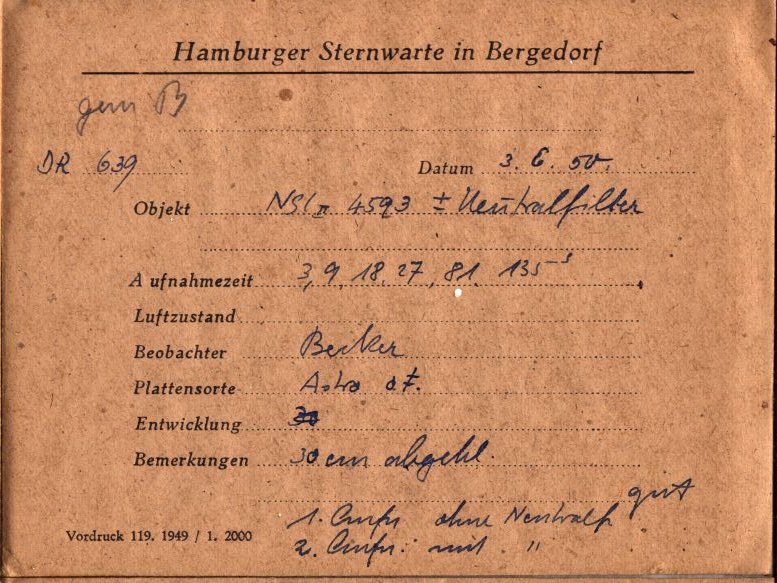 Hamburger Sternwarte in Bergedorf
gem B
DR 639 Datum 3. 6. 50.
Objekt 4593 ± Neutralfilter
Aufnahmezeit 3, 9, 18, 27, 81, 135 s
Luftzustand
Beobachter Becker
Plattensorte Astro
Entwicklung
Bemerkungen 30 cm abgebl.
gut
1. Aufn. ohne Neutralf
2. Aufn. mit "
Vordruck 119. 1949 / 1. 2000